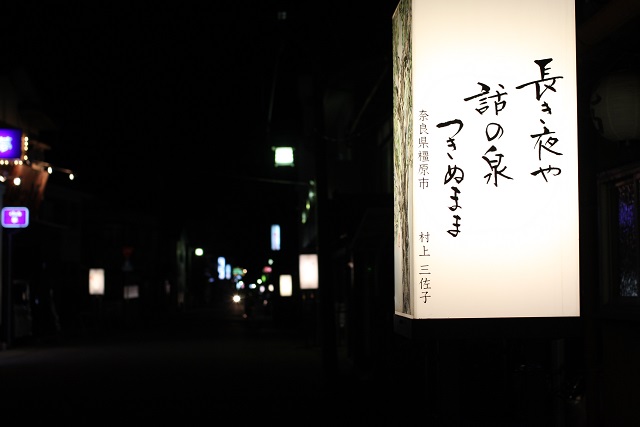 長き夜や
話の泉
つきぬまま
奈良県橿原市 村上 三佐子